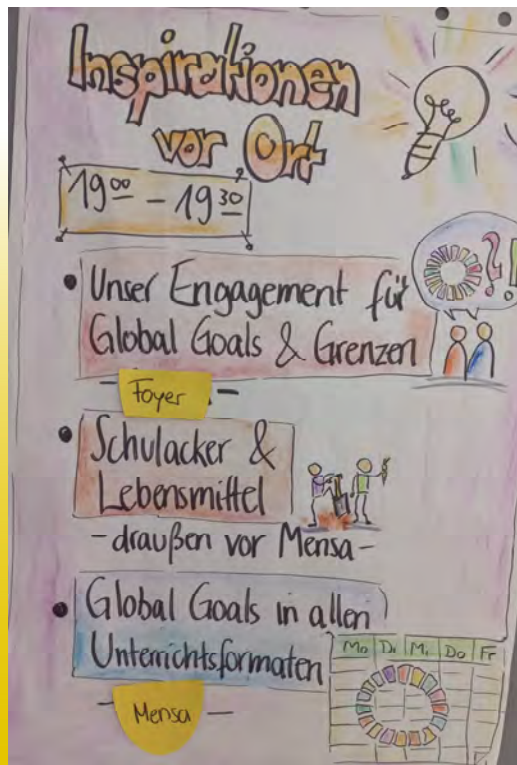 Inspirationen
vor Ort
19⁰⁰ – 19³⁰
• Unser Engagement für
Global Goals & Grenzen
– Foyer –
• Schulacker &
Lebensmittel
– draußen vor Mensa –
• Global Goals in allen
Unterrichtsformaten
– Mensa –
?!
Mo Di Mi Do Fr